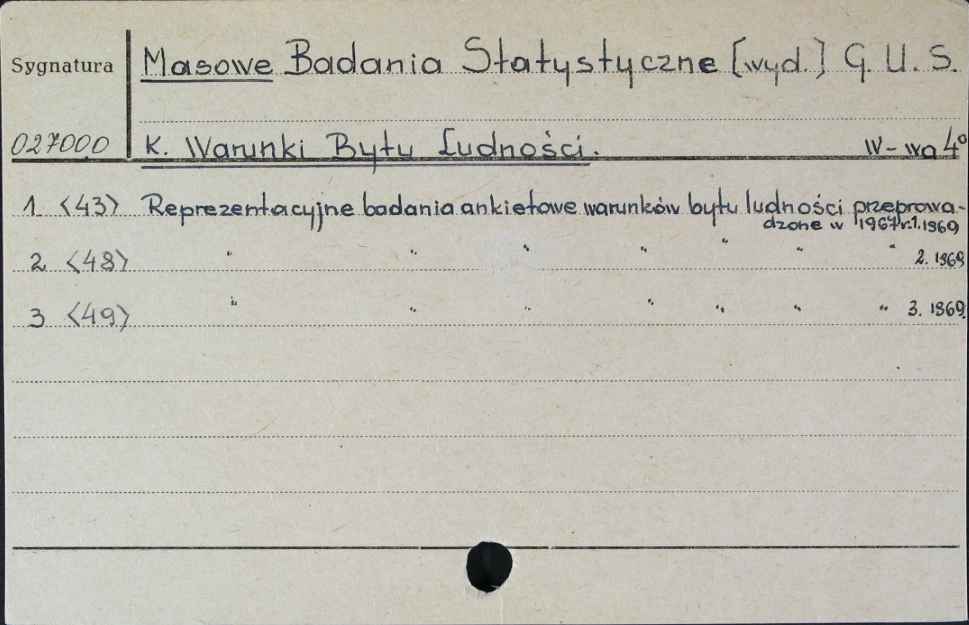 Sygnatura Masowe Badania Statystyczne [wyd.] G. U. S.
027000 K. Warunki Bytu Ludności. W-wa 4°
1 <43> Reprezentacyjne badania ankietowe warunków bytu ludności przeprowa-
dzone w 1967r. 1. 1969
2 <48> " " " " " " " 2. 1969
3 <49> " " " " " " " 3. 1969.